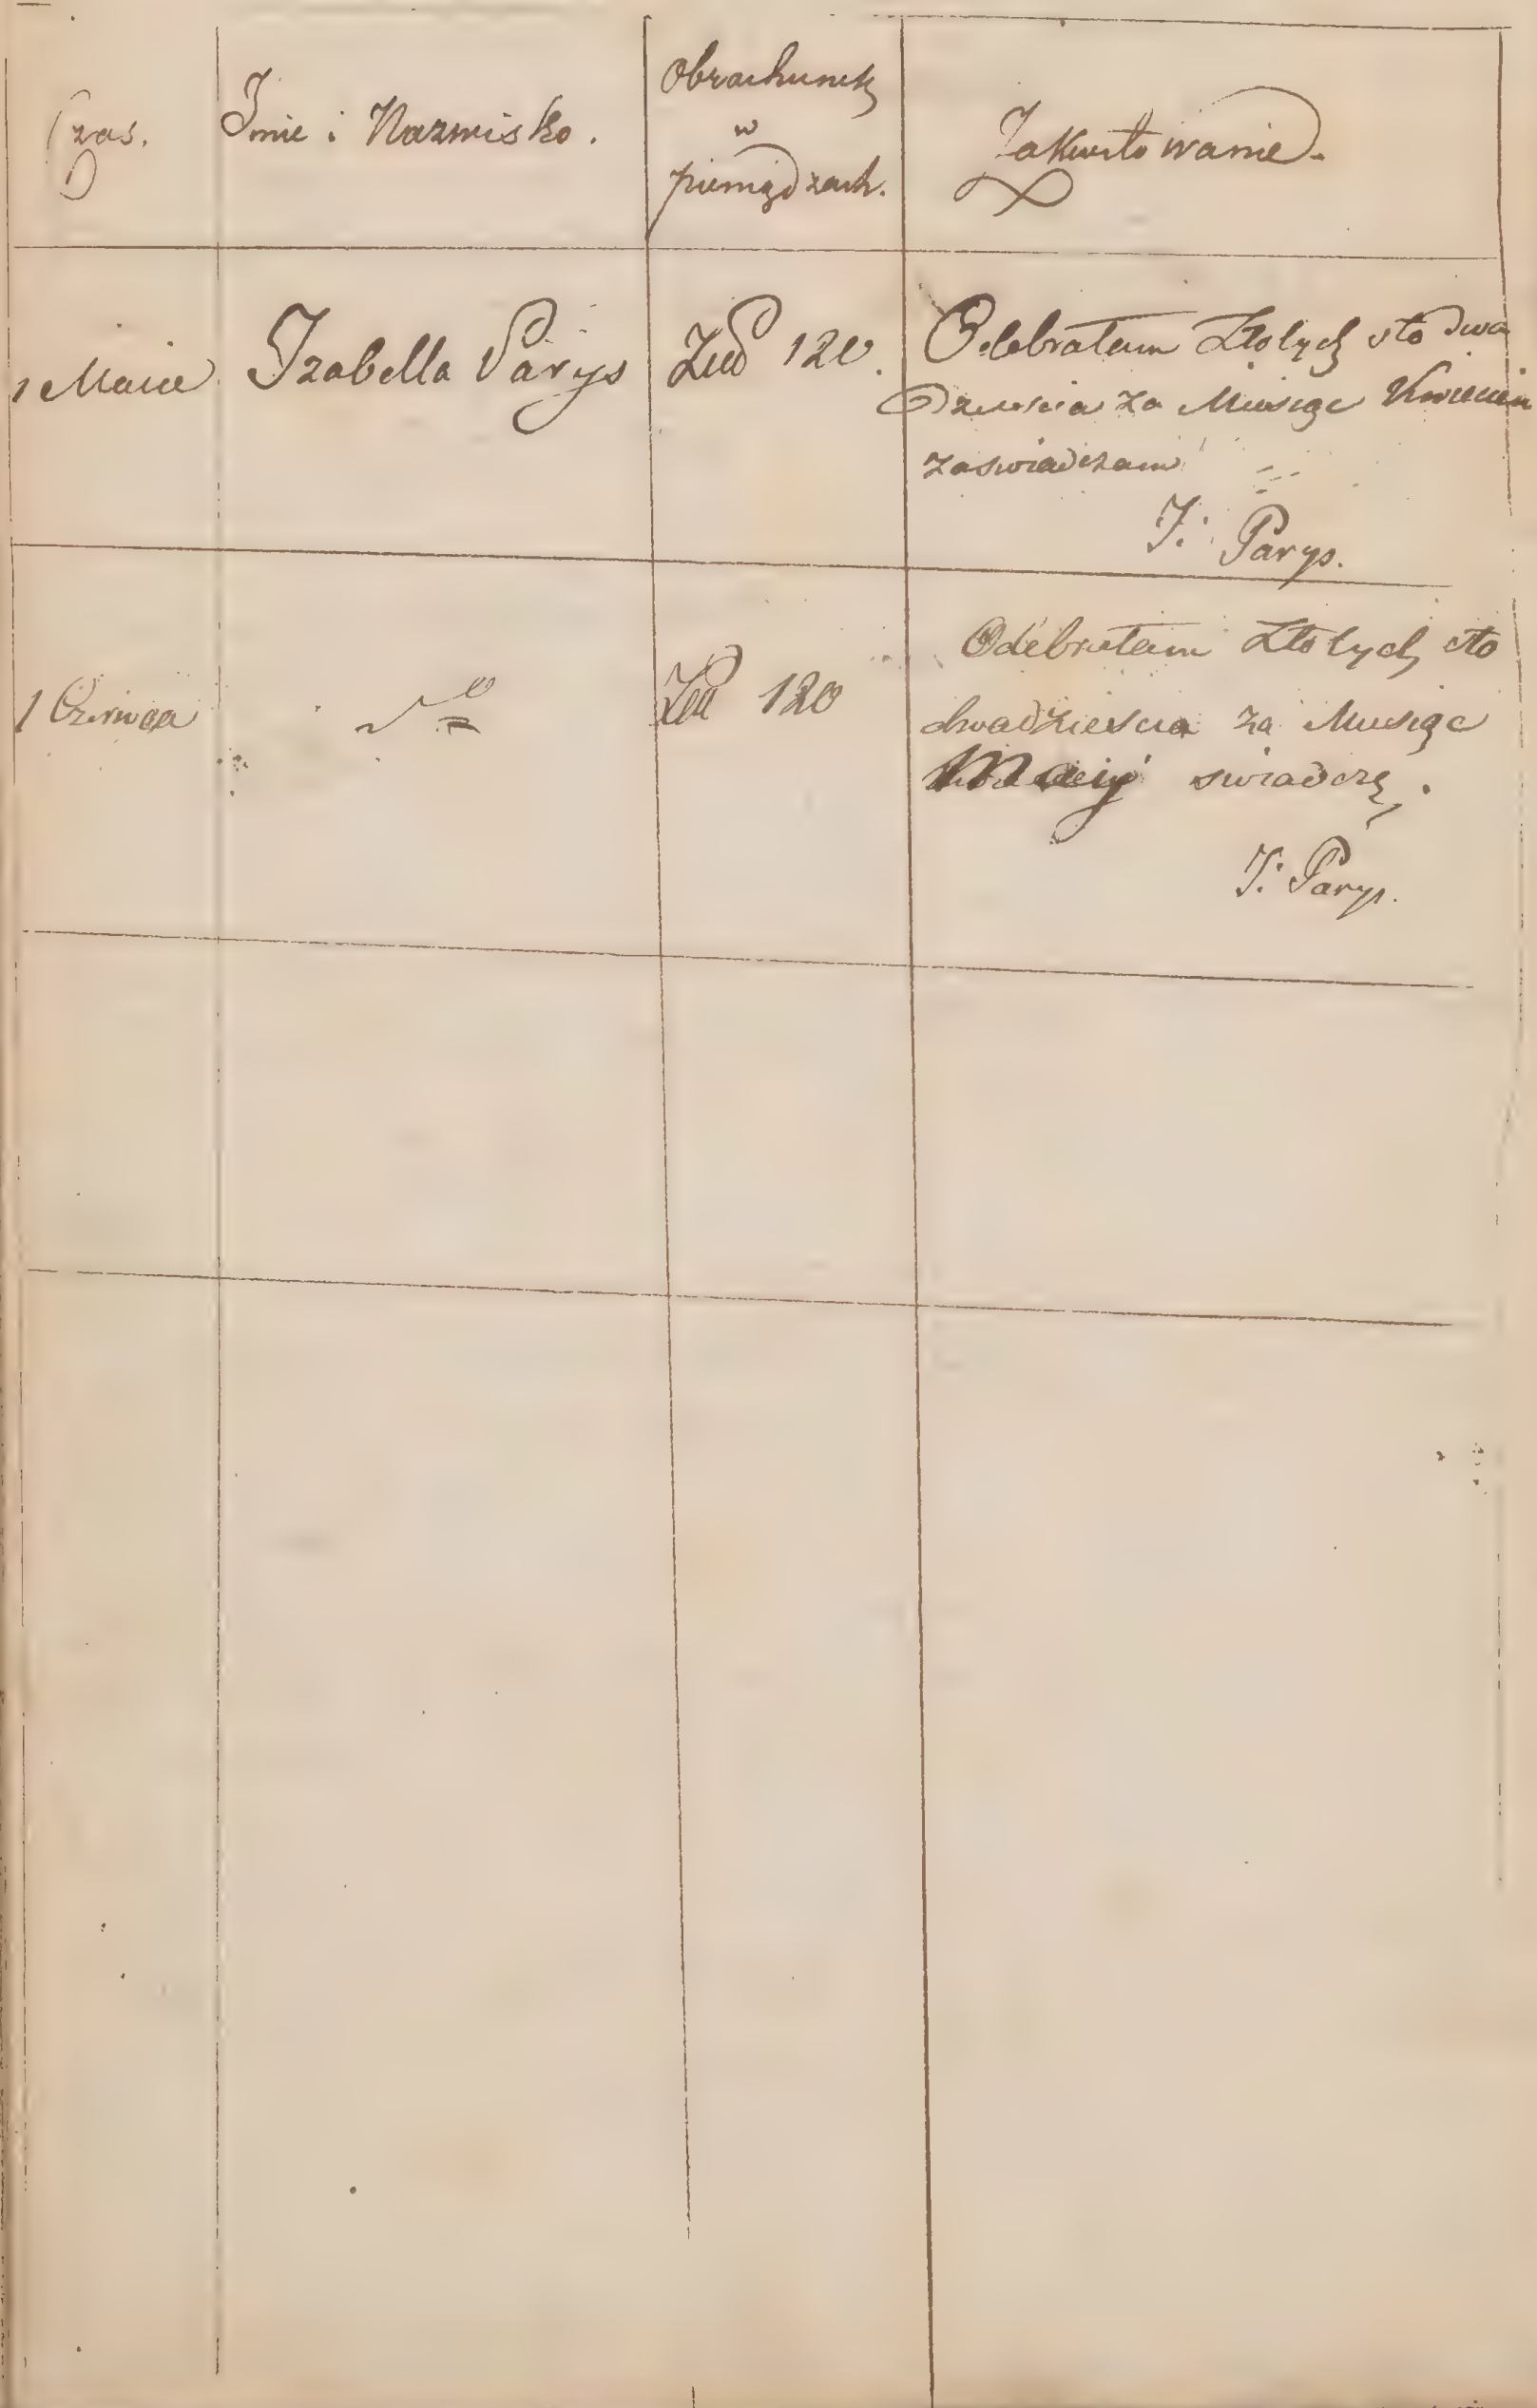 Czas.
Imie i Nazwisko.
Obrachunek
w
pieniądzach.
Zakwitowanie.
1 Maia
Izabella Parys
Złł 120.
Odebrałam Złotych sto dwa
dzieścia za Miesiąc Kwiecien
zaswiadczam
I: Parys.
1 Czerwca
120
Odebrałam Złotych sto
dwadzieścia za Miesiąc
May swiadczę.
I: Parys.